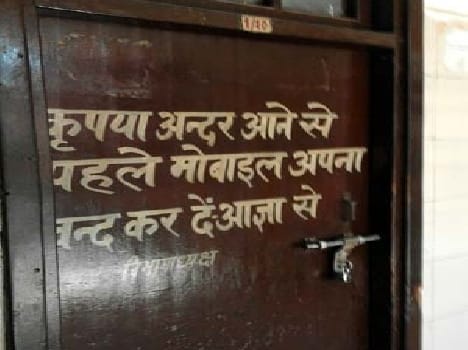 1/40
कृपया अन्दर आने से
पहले मोबाइल अपना
बन्द कर दें-आज्ञा से
विभागाध्यक्ष